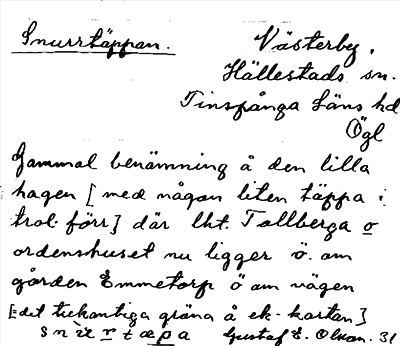 Snurrtäppan.
Västerby,
Hällestads sn.
Finspånga läns hd
Ögl
Gammal benämning å den lilla
hagen [med någon liten täppa i
trol. förr] där lht. Tallberga o
ordenshuset nu ligger ö. om
gården Emmetorp ö om vägen
[det trekantiga gröna å ek. kartan]
Gustaf E. Olsson. 31